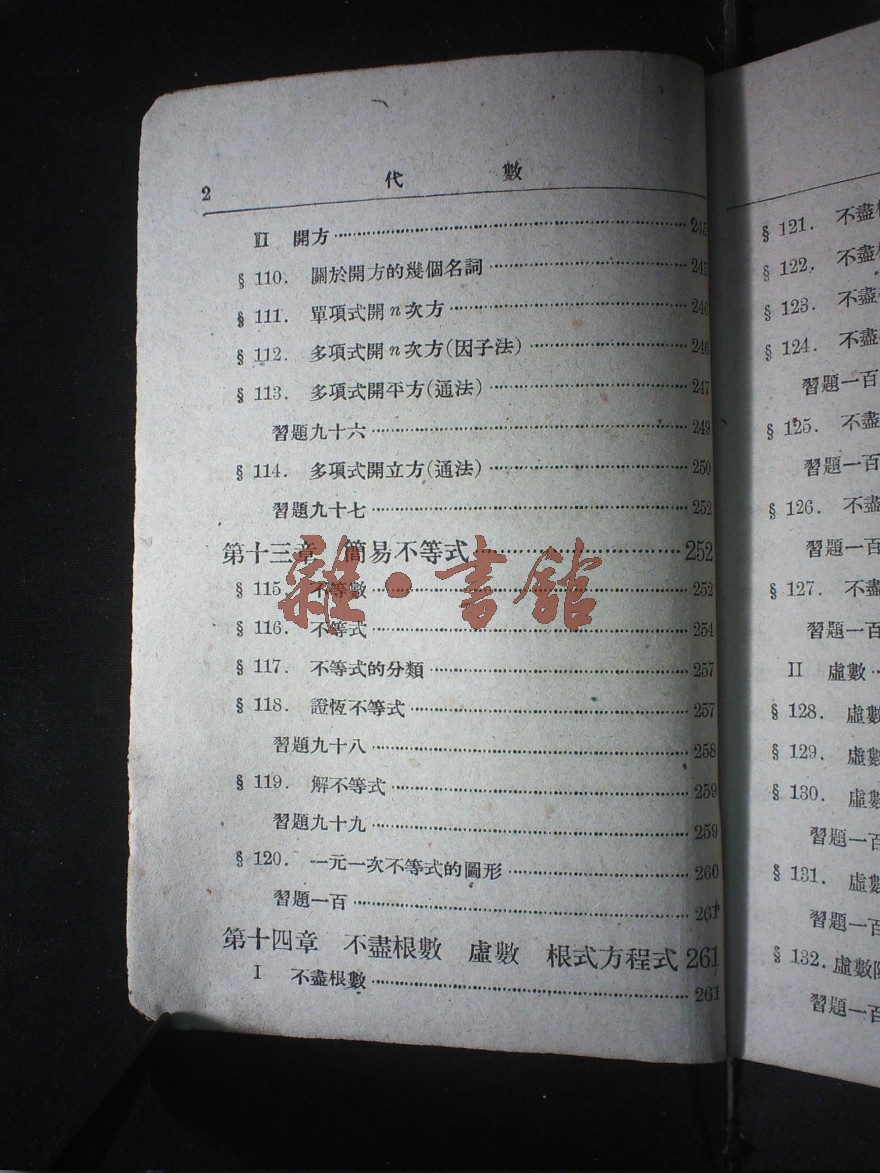 2 代 數
II 開方 245
§ 110. 關於開方的幾個名詞 245
§ 111. 單項式開n次方 246
§ 112. 多項式開n次方(因子法) 246
§ 113. 多項式開平方(通法) 247
習題九十六 249
§ 114. 多項式開立方(通法) 250
習題九十七 252
第十三章 簡易不等式 252
§ 115. 不等數 252
§ 116. 不等式 254
§ 117. 不等式的分類 257
§ 118. 證恆不等式 257
習題九十八 258
§ 119. 解不等式 259
習題九十九 259
§ 120. 一元一次不等式的圖形 260
習題一百 261
第十四章 不盡根數 虛數 根式方程式 261
I 不盡根數 261
雜·書館
§ 121. 不盡
§ 122. 不盡
§ 123. 不盡
§ 124. 不盡
習題一百
§ 125. 不盡
習題一百
§ 126. 不盡
習題一百
§ 127. 不盡
習題一百
II 虛數
§ 128. 虛數
§ 129. 虛數
§ 130. 虛數
習題一百
§ 131. 虛數
習題一百
§ 132. 虛數
習題一百